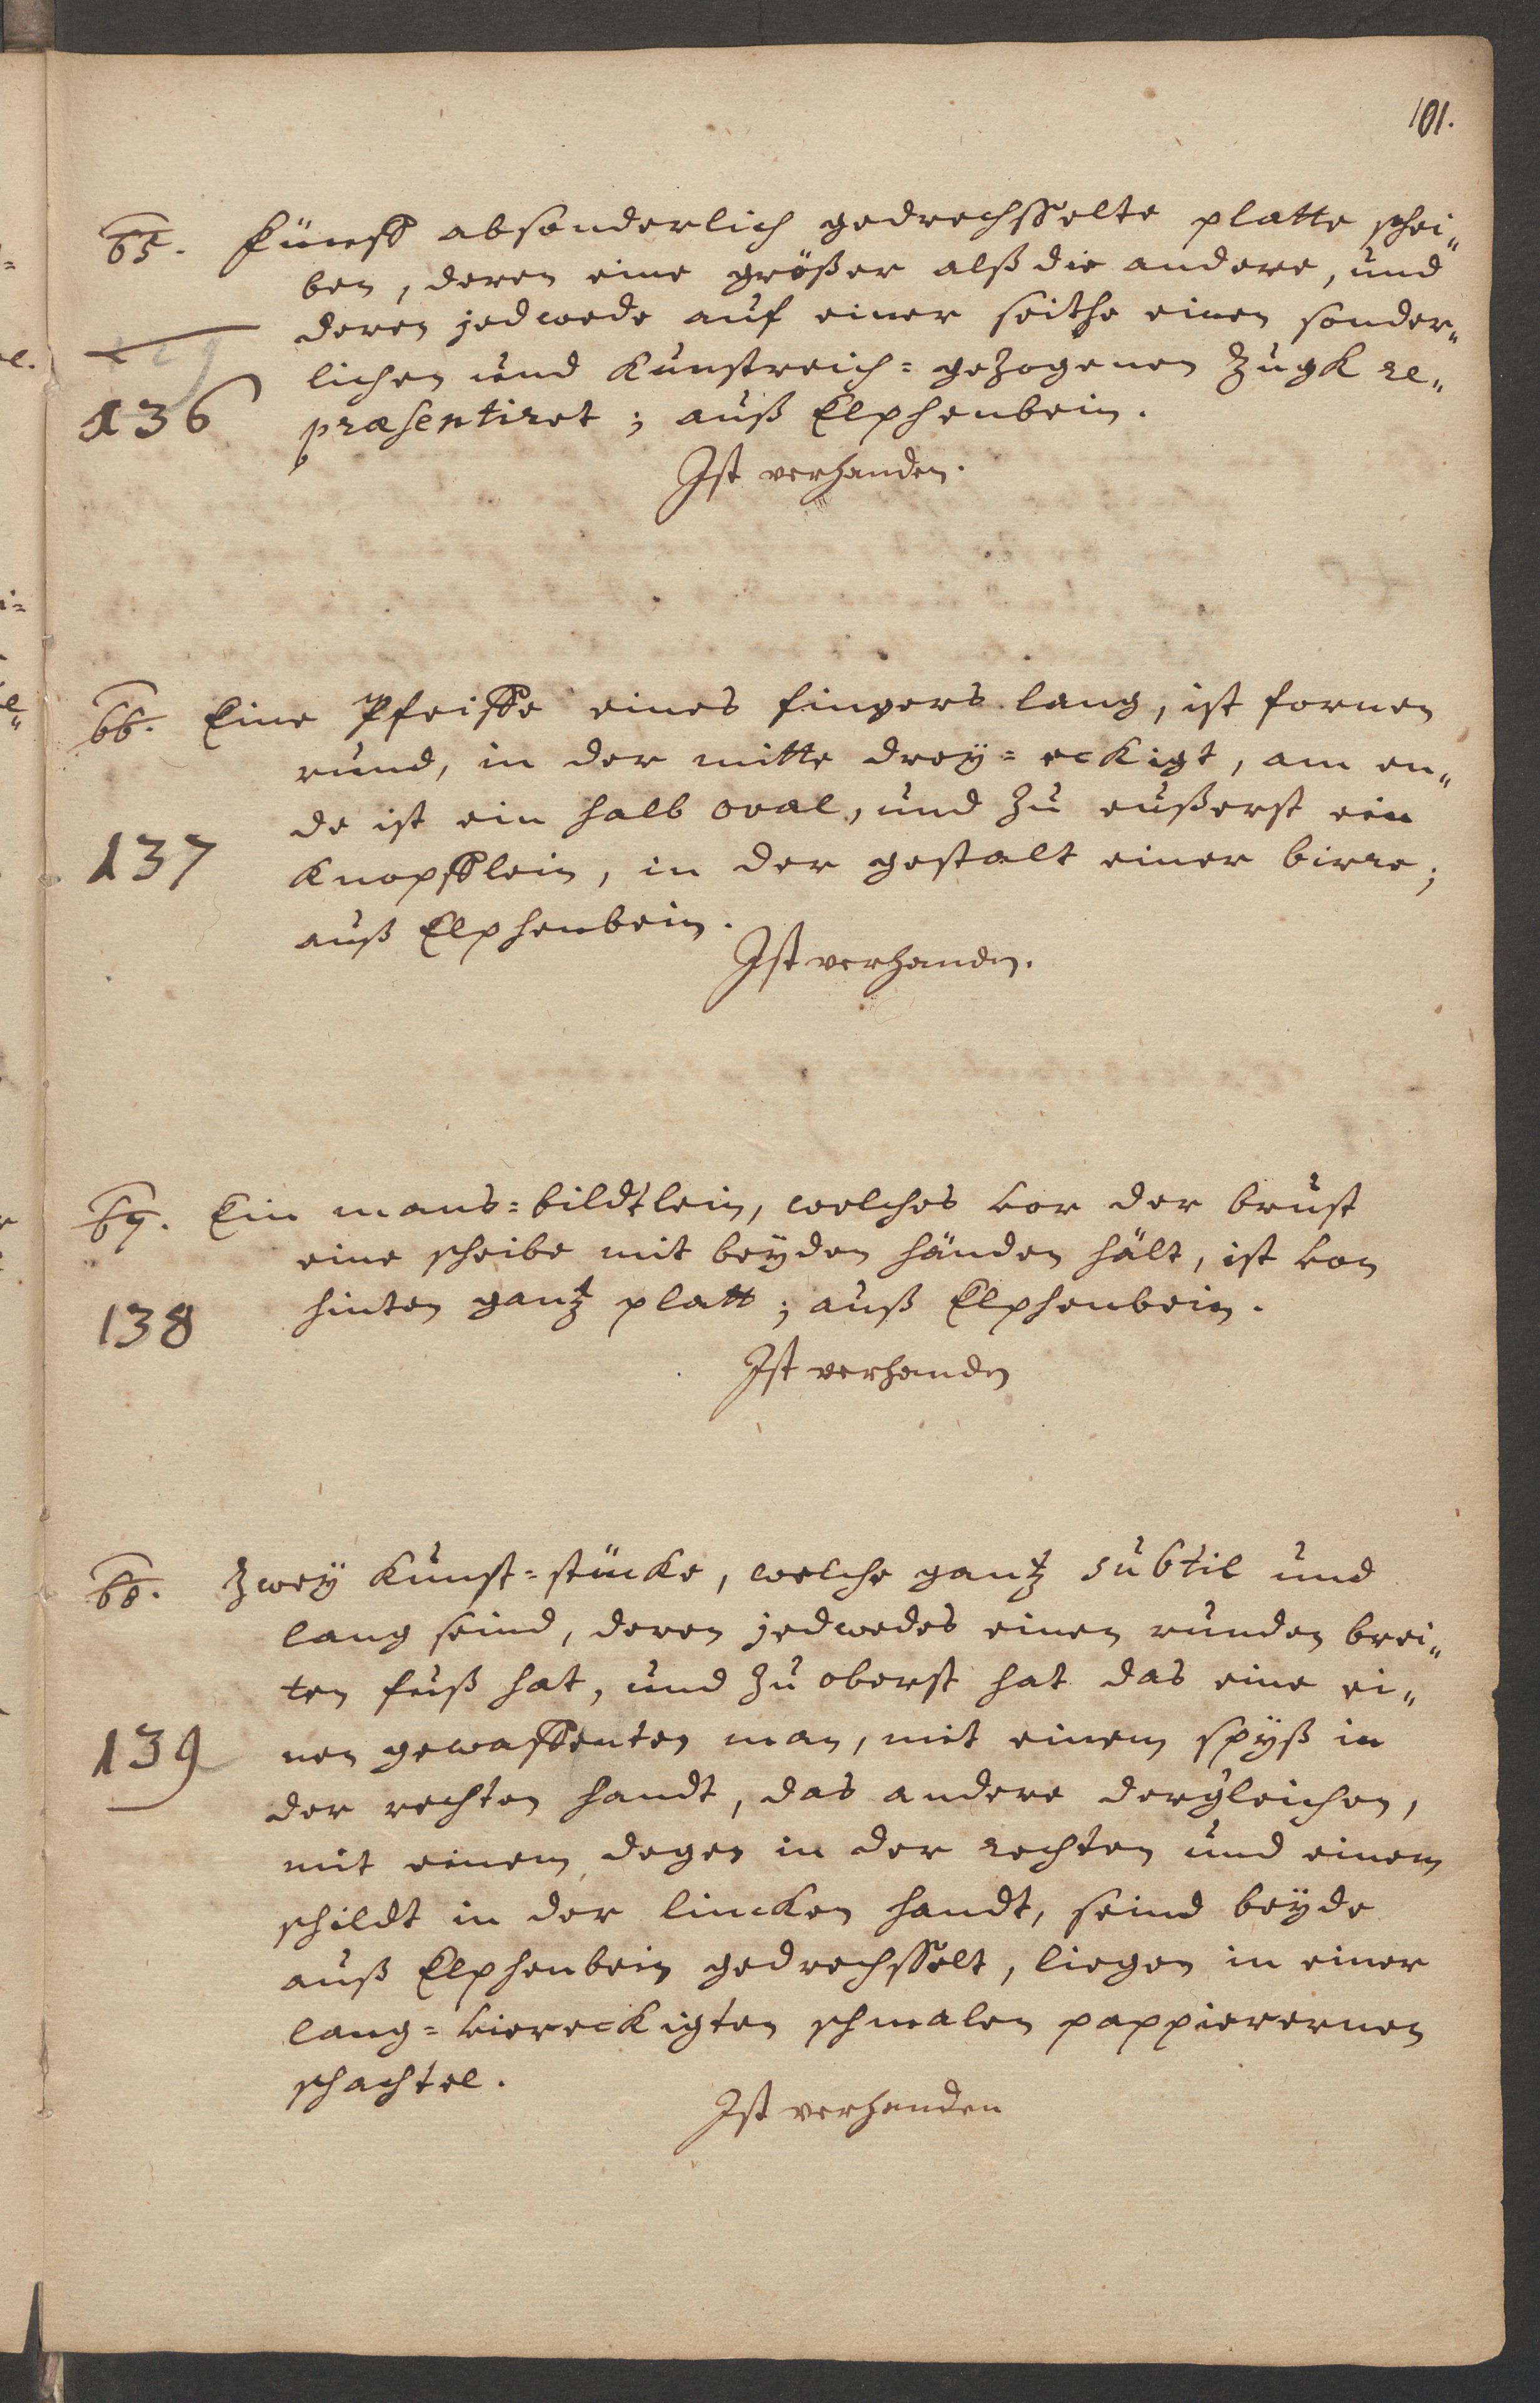 101.
65. Fünff absonderlich gedrechsselte platte schei„
ben, deren eine größer alß die andere, und
deren jedwede auf einer seithe einen sonder„
lichen und Kunstreich= gezogenen Zugk re„
136
præsentiret; auß Elphenbein.
Ist verhanden.
66. Eine Pfeiffe eines fingers lang, ist fornen
rund, in der mitte dreÿ= eckigt, am en„
de ist ein halb oval, und zu eußerst ein
137
Knopfflein, in der gestalt einer birre;
auß Elphenbein.
Ist verhanden.
67. Ein mans=bildtlein, welches vor der brust
eine scheibe mit beÿden händen hält, ist von
138
hinten gantz platt; auß Elphenbein.
Ist verhanden
68. Zweÿ Kunst=stücke, welche gantz subtil und
lang seind, deren jedwedes einen runden brei„
ten fuß hat, und zu oberst hat das eine ei„
139
nen gewaffenten man, mit einem spÿß in
der rechten handt, das andere dergleichen,
mit einem degen in der rechten und einem
schildt in der lincken handt, seind beÿde
auß Elphenbein gedrechsselt, liegen in einer
lang=viereckigten schmalen pappierernen
schachtel.
Ist verhanden